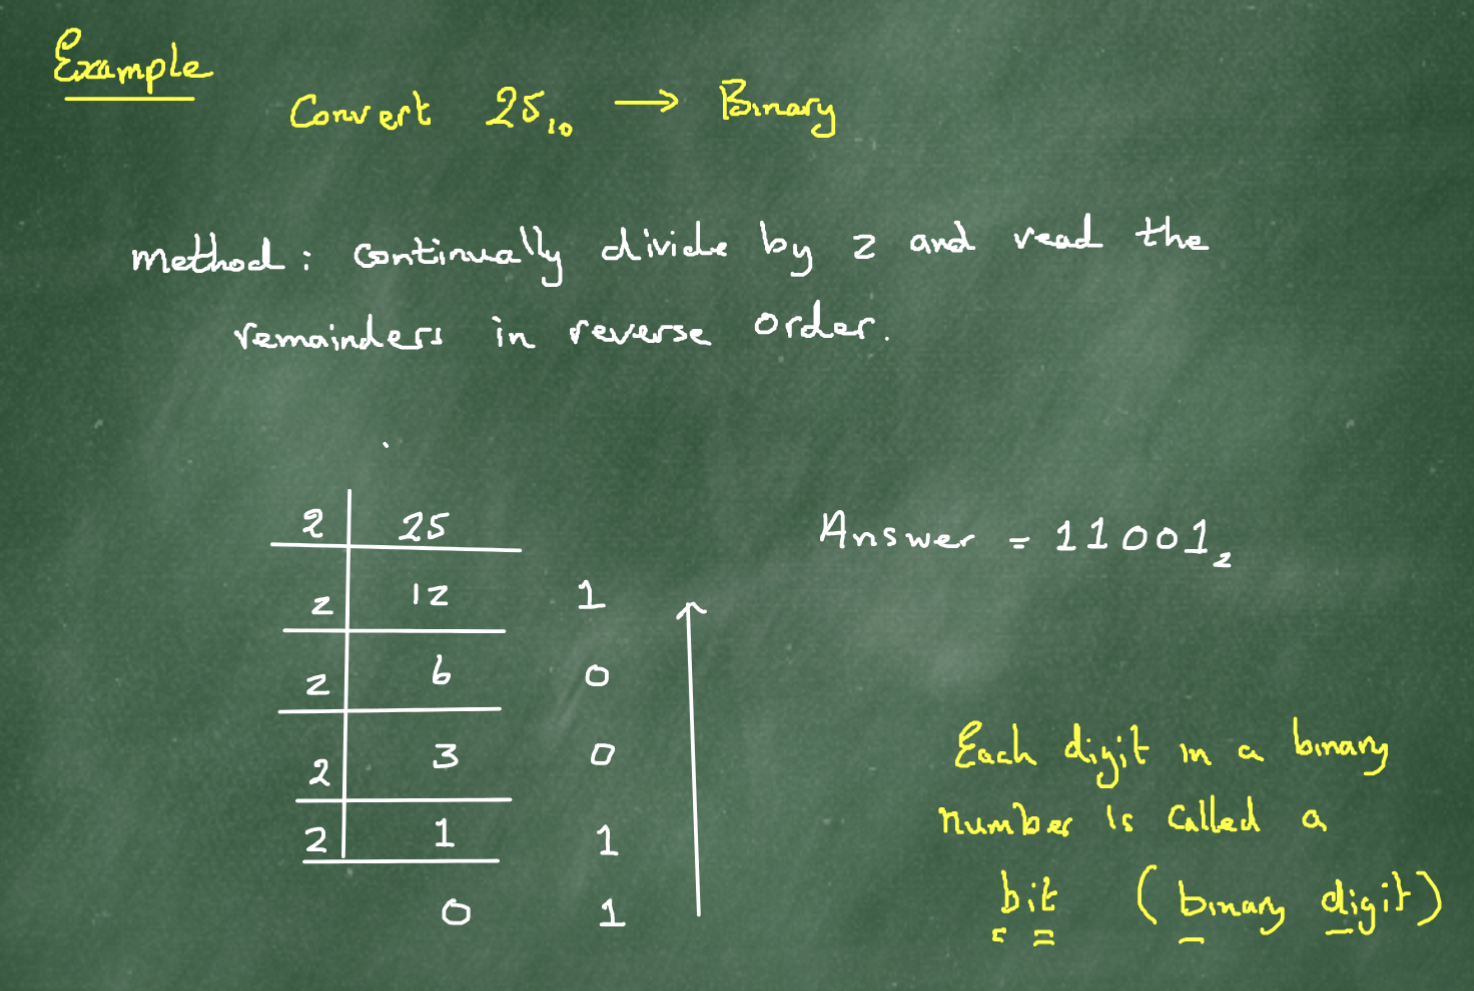 Example
Convert 25₁₀ → Binary
method: continually divide by 2 and read the
remainders in reverse order.
2 25
2 12 1
2 6 0
2 3 0
2 1 1
0 1
Answer = 11001₂
Each digit in a binary
number is called a
bit (binary digit)